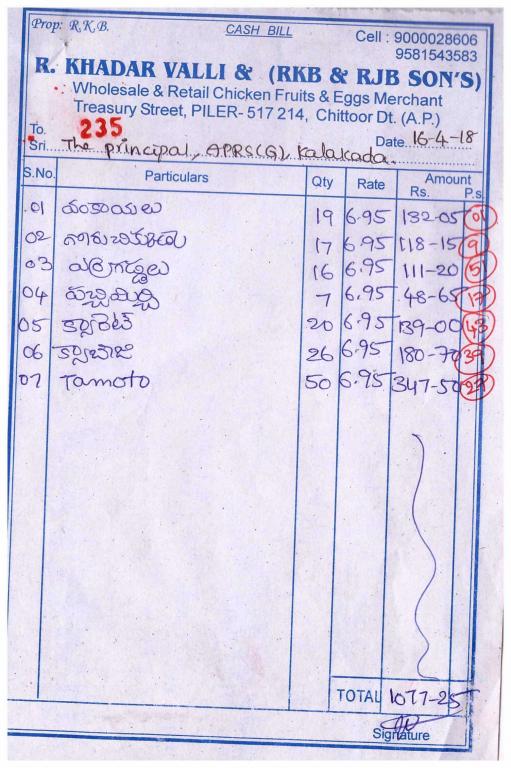 Prop: R.K.B. CASH BILL Cell : 9000028606
9581543583
R. KHADAR VALLI & (RKB & RJB SON'S)
Wholesale & Retail Chicken Fruits & Eggs Merchant
Treasury Street, PILER- 517 214, Chittoor Dt. (A.P.)
To. 235 Date 16-4-18
Sri. The principal, APRS(G), Kalakada.
S.No. Particulars Qty Rate Amount Rs. P.s
01 వంకాయలు 19 6.95 132-05 01
02 గోరుచిక్కుడు 17 6.95 118-15 9
03 ఎర్రగడ్డలు 16 6.95 111-20 51
04 పచ్చిమిర్చి 7 6.95 48-65 17
05 క్యారెట్ 20 6.95 139-00 43
06 క్యాబేజి 26 6.95 180-70 39
07 Tamoto 50 6.95 347-50
TOTAL 1077-25
Signature